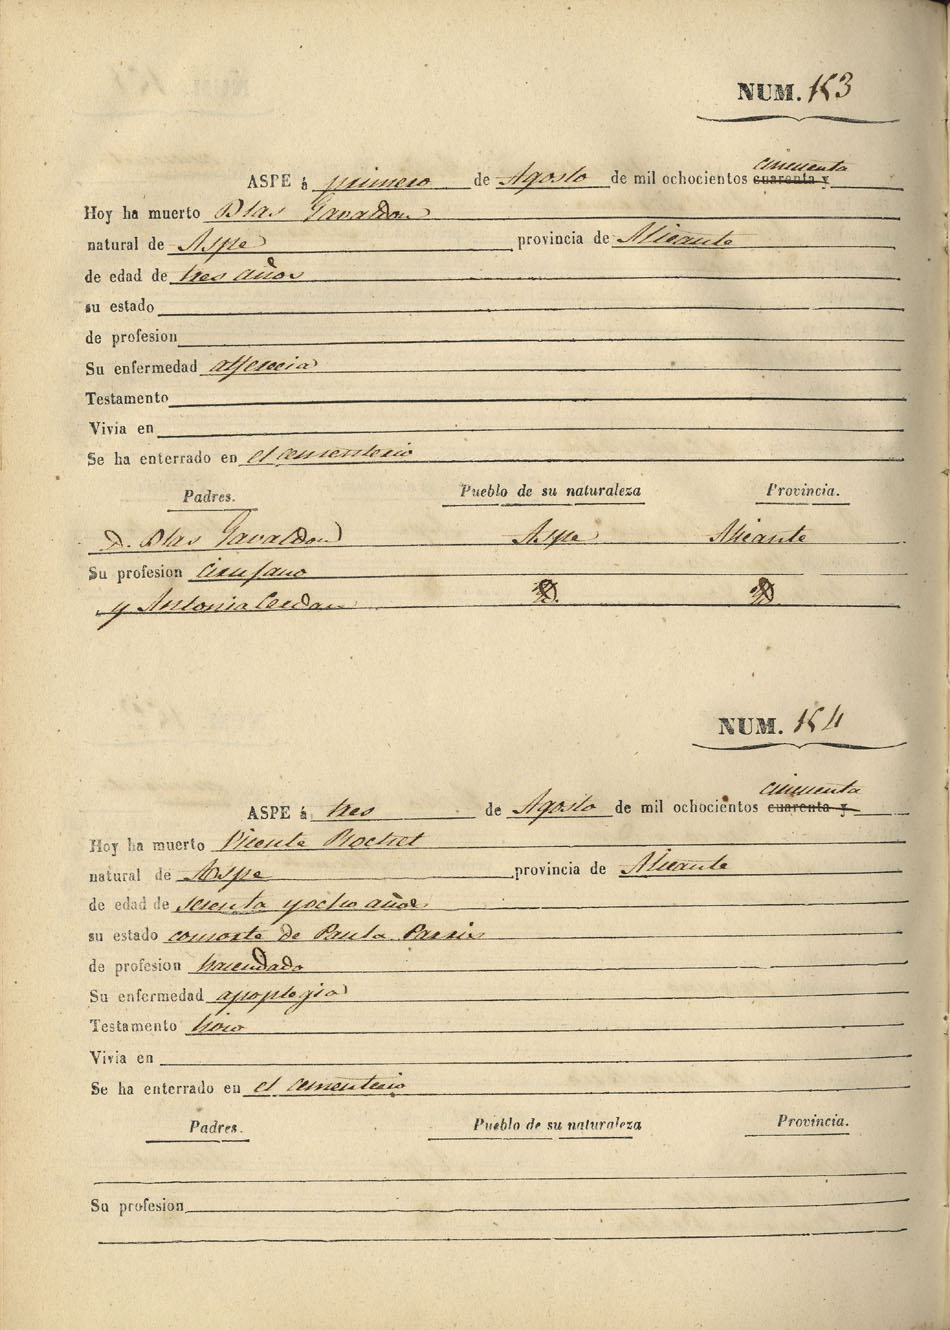 NUM. 153
cincuenta
ASPE á primero de Agosto de mil ochocientos cuarenta y
Hoy ha muerto Blas Gavaldon
natural de Aspe provincia de Alicante
de edad de tres años
su estado
de profesion
Su enfermedad alferecia
Testamento
Vivia en
Se ha enterrado en el cementerio
Padres. Pueblo de su naturaleza Provincia.
D. Blas Gavaldon Aspe Alicante
Su profesion cirujano
y Antonia Cerdan
NUM. 154
cincuenta
ASPE á tres de Agosto de mil ochocientos cuarenta y
Hoy ha muerto Vicente
natural de Aspe provincia de Alicante
de edad de y ocho años
su estado consorte de Paula
de profesion hacendado
Su enfermedad apoplegia
Testamento hizo
Vivia en
Se ha enterrado en el cementerio
Padres. Pueblo de su naturaleza Provincia.
Su profesion